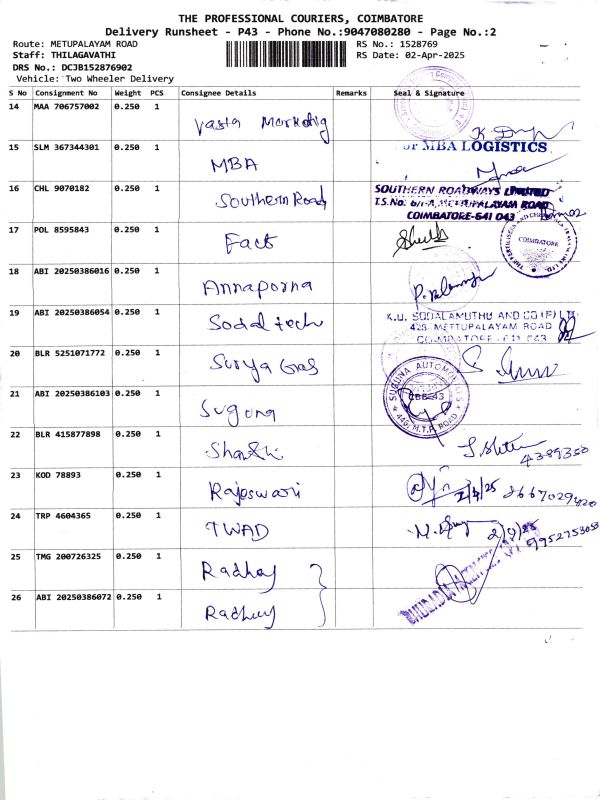 THE PROFESSIONAL COURIERS, COIMBATORE
Delivery Runsheet - P43 - Phone No.:9047080280 - Page No.:2
Route: METUPALAYAM ROAD RS No.: 1528769
Staff: THILAGAVATHI RS Date: 02-Apr-2025
DRS No.: DCJB152876902
Vehicle: Two Wheeler Delivery
S No Consignment No Weight PCS Consignee Details Remarks Seal & Signature
14 MAA 706757002 0.250 1 Vasta Marketing
15 SLM 367344301 0.250 1 MBA For MBA LOGISTICS
16 CHL 9070182 0.250 1 Southern Road SOUTHERN ROADWAYS LIMITED
T.S.No. 6/1-A, METTUPALAYAM ROAD
COIMBATORE-641 043
17 POL 8595843 0.250 1 Fact COIMBATORE
18 ABI 20250386016 0.250 1 Annaporna
19 ABI 20250386054 0.250 1 Sodal tech K.U. SODALAMUTHU AND CO (P) LTD
428, METTUPALAYAM ROAD
COIMBATORE - 641 043
20 BLR 5251071772 0.250 1 Surya Gas
21 ABI 20250386103 0.250 1 Suguna SUGUNA AUTOMOBILES
CBE-43
446, M.T.P. ROAD
22 BLR 415877898 0.250 1 Shanthi 4389350
23 KOD 78893 0.250 1 Rajeswari 2/4/25 8667029420
24 TRP 4604365 0.250 1 TWAD 9952753058
25 TMG 200726325 0.250 1 Radhey
26 ABI 20250386072 0.250 1 Radhey